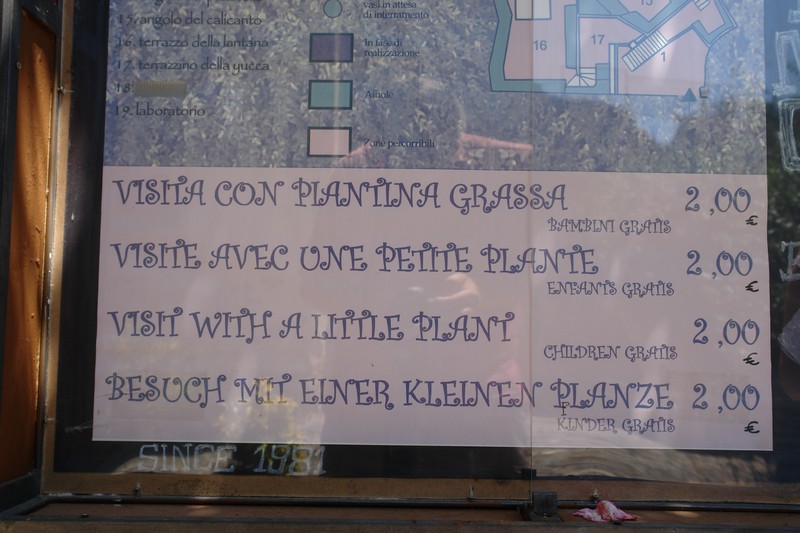 15. angolo del calicanto
16. terrazzo della lantana
17. terrazzino della yucca
18.
19. laboratorio
vasi in attesa
di interramento
In fase di
realizzazione
Aiuole
Zone percorribili
16
17
1
VISITA CON PIANTINA GRASSA 2,00
BAMBINI GRATIS €
VISITE AVEC UNE PETITE PLANTE 2,00
ENFANTS GRATIS €
VISIT WITH A LITTLE PLANT 2,00
CHILDREN GRATIS €
BESUCH MIT EINER KLEINEN PLANZE 2,00
F
KINDER GRATIS €
SINCE 1981